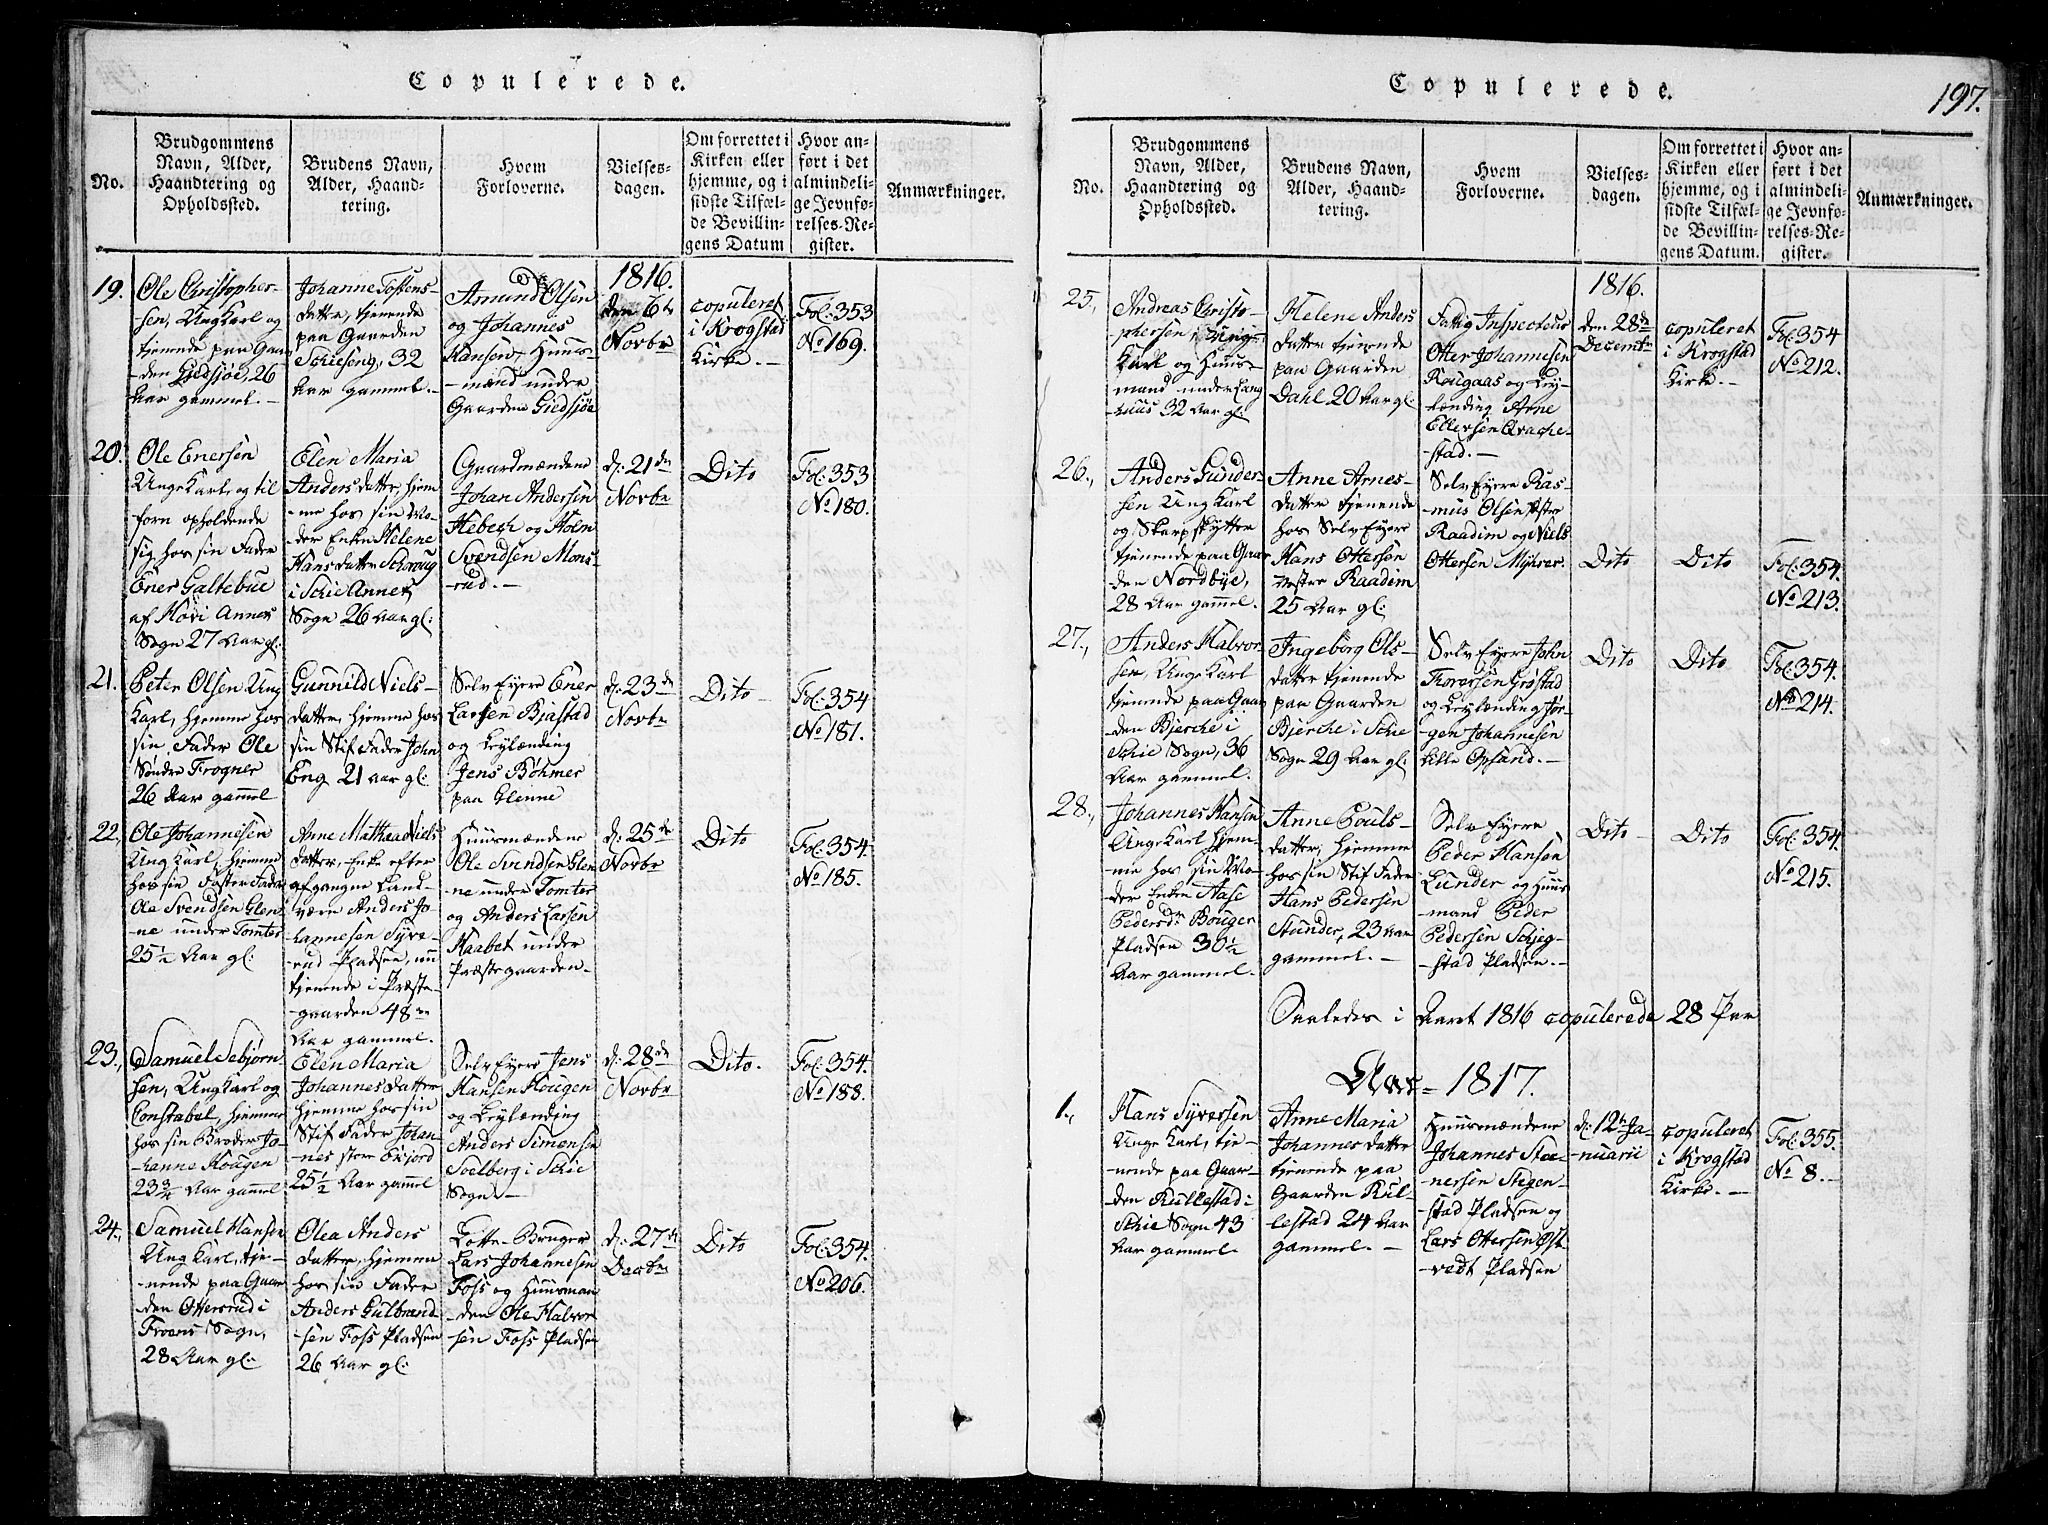 Copulerede.
No.
Brudgommens
Navn, Alder,
Haandtering og
Opholdssted.
Brudens Navn,
Alder, Haand-
tering.
Hvem
Forloverne.
Vielses-
dagen.
Om forrettet i
Kirken eller
hjemme, og i
sidste Tilfæl-
de Bevillin-
gens Datum
Hvor an-
ført i det
almindeli-
ge Jevnfø-
relses-Re-
gister.
Anmærkninger.
19.
Ole Christopher-
sen, Ung Karl og
tjenende paa Gaar
den Giedsjøe, 26
Aar gammel.
Johanne Tostens-
datter, tjenende
paa Gaarden
32
Aar gammel.
Amund Olsen
og Johannes
Hansen, Huus-
mænd under
Gaarden Giedsjøe
1816.
den 6te
Novbr
copuleret
i Krogstad
Kirke.
Fol: 353
No 169.
20.
Ole Enersen
Unge Karl, og til
forn opholdende
sig hos sin Fader
Ener Galtebue
af Annex
Sogn 27 Aar gl:
Elen Maria
Anders datter, hjem
me hos sin Mo-
der Enken Helene
Hans datter
i Schie Annex
Sogn 26 Aar gl:
Gaardmændene
Johan Andersen
og Holm
Svendsen Mons-
rud.
d: 21de
Novbr
Dito
Fol: 353
No 180.
21.
Peter Olsen Ung
Karl, hjemme hos
sin Fader Ole
Søndre Frogner
26 Aar gammel
Gunnild Niels-
datter, hjemme hos
sin Stif Fader John
Eng 21 Aar gl:
Selv Eyere Ener
Larsen Bjastad
og Leylænding
Jens Bøhmer
paa Glenne
d: 23de
Novbr
Dito
Fol: 354
No 181.
22.
Ole Johannesen
Ung Karl, hjemme
hos sin Foster Fader
Ole Svendsen Glen
ne under Tomter
25½ Aar gl:
Anne Mathea Niels
datter, Enke efter
afgangne Land-
værn Anders Jo-
hannesen Syve-
rud Pladsen, nu
tjenende i Præste-
gaarden 48
Aar gammel.
Huusmændene
Ole Svendsen Glen
ne under Tomter
og Anders Larsen
Haabet under
Præstegaarden.
d: 25de
Novbr
Dito
Fol: 354.
No 185.
23.
Samuel Sebjørn
sen, Ung Karl og
Constabel, hjemme
hos sin Broder Jo-
hanne Hougen
23¾ Aar gammel
Elen Maria
Johannes datter
hjemme hos sin
Stif Fader Johan-
nes store
25½ Aar gammel
Selv Eyere Jens
Hansen Hougen
og Leylænding
Anders Simensen
Soelberg i Schie
Sogn.
d: 28de
Novbr
Dito.
Fol: 354.
No 188.
24.
Samuel Hansen
Ung Karl, tje-
nende paa Gaar
den Ottersrud i
Froens Sogn,
28 Aar gl:
Olea Anders
datter, hjemme
hos sin Fader
Anders Gulbrand
sen Foss Pladsen
26 Aar gl:
Lotte-Bruger
Lars Johannesen
Foss og Huusman
den Ole Halvor
sen Foss Pladsen
d: 27de
Decbr
Dito
Fol: 354.
No 206.
Copulerede.
197.
No.
Brudgommens
Navn, Alder,
Haandtering og
Opholdssted.
Brudens Navn,
Alder, Haand-
tering.
Hvem
Forloverne.
Vielses-
dagen.
Om forrettet i
Kirken eller
hjemme, og i
sidste Tilfæl-
de Bevillin-
gens Datum.
Hvor an-
ført i det
almindeli-
ge Jevnfø-
relses-Re-
gister.
Anmærkninger.
25.
Andreas Christo-
phersen, Unge
Karl og Huus-
mand under Lang
huus 32 Aar gl:
Helene Anders
datter tjenende
paa Gaarden
Dahl 20 Aar gl:
Fattig Inspecteur
Otter Johannesen
Rougaas og Ley-
lænding Arne
Ellevsen Qvache-
stad.
1816.
den 28de
Decembr
copuleret
i Krogstad
Kirke.
Fol: 354
No 212.
26.
Anders Gunder-
sen Ung Karl
og Skarpskytter
tjenende paa Gaar
den Nordbye,
28 Aar gammel.
Anne Arnes-
datter tjenende
hos Selv Eyere
Hans Ottersen
vestre Raadim
25 Aar gl:
Selv Eyere Ras-
mus Olsen vestre
Raadim og Niels
Ottersen Myhrer.
Dito
Dito
Fol: 354.
No 213.
27.
Anders Halvor
sen, Unge Karl
tjenende paa Gaar
den Bjerche i
Schie Sogn, 36
Aar gammel.
Ingeborg Ols-
datter tjenende
paa Gaarden
Bjerche i Schie
Sogn 29 Aar gl:
Selv Eyere John
Thoresen Grøstad
og Leylænding Jør-
gen Johannesen
Lille Opsand.
Dito
Dito
Fol: 354.
No 214.
28.
Johannes Hansen
Unge Karl hjem-
me hos sin Mo-
der Enken Aase
Pedersdr Bouger
Pladsen 30½
Aar gammel.
Anne Pouls-
datter, hjemme
hos sin Stif Fader
Hans Pedersen
Stunder, 23 Aar
gammel.
Selv Eyere
Peder Hansen
Lunder og Huus
mand Peder
Pedersen Schjeg-
stad Pladsen.
Dito
Dito
Fol: 354.
No 215.
Saaledes i Aaret 1816 copulerede 28 Par
Aar 1817.
1.
Hans Syversen
Unge Karl, tje-
nende paa Gaar-
den Kullestad i
Schie Sogn 43
Aar gammel.
Anne Maria
Johannes datter
tjenende paa
Gaarden Kul-
lestad 24 Aar
gammel.
Huusmændene
Johannes Stee-
nersen Stegen-
stad Pladsen og
Lars Ottersen Øst
vedt Pladsen
d: 12te Ja-
nuarii
copuleret
i Krogstad
Kirke.
Fol: 355.
No 8.